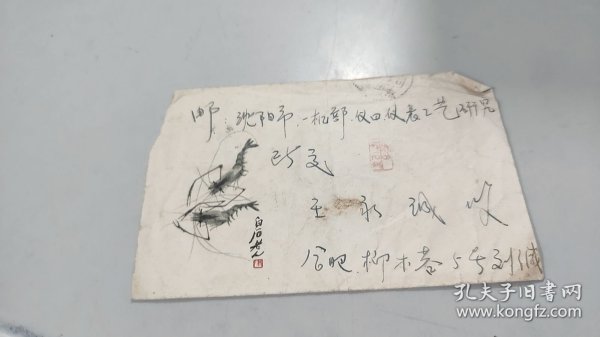 邮：沈阳市．一机部．仪口仪表工艺研究
所 交
王 永 诚 收
白石老人
合肥．柳木巷5号刘缄
孔夫子旧书网
www.kongfz.com